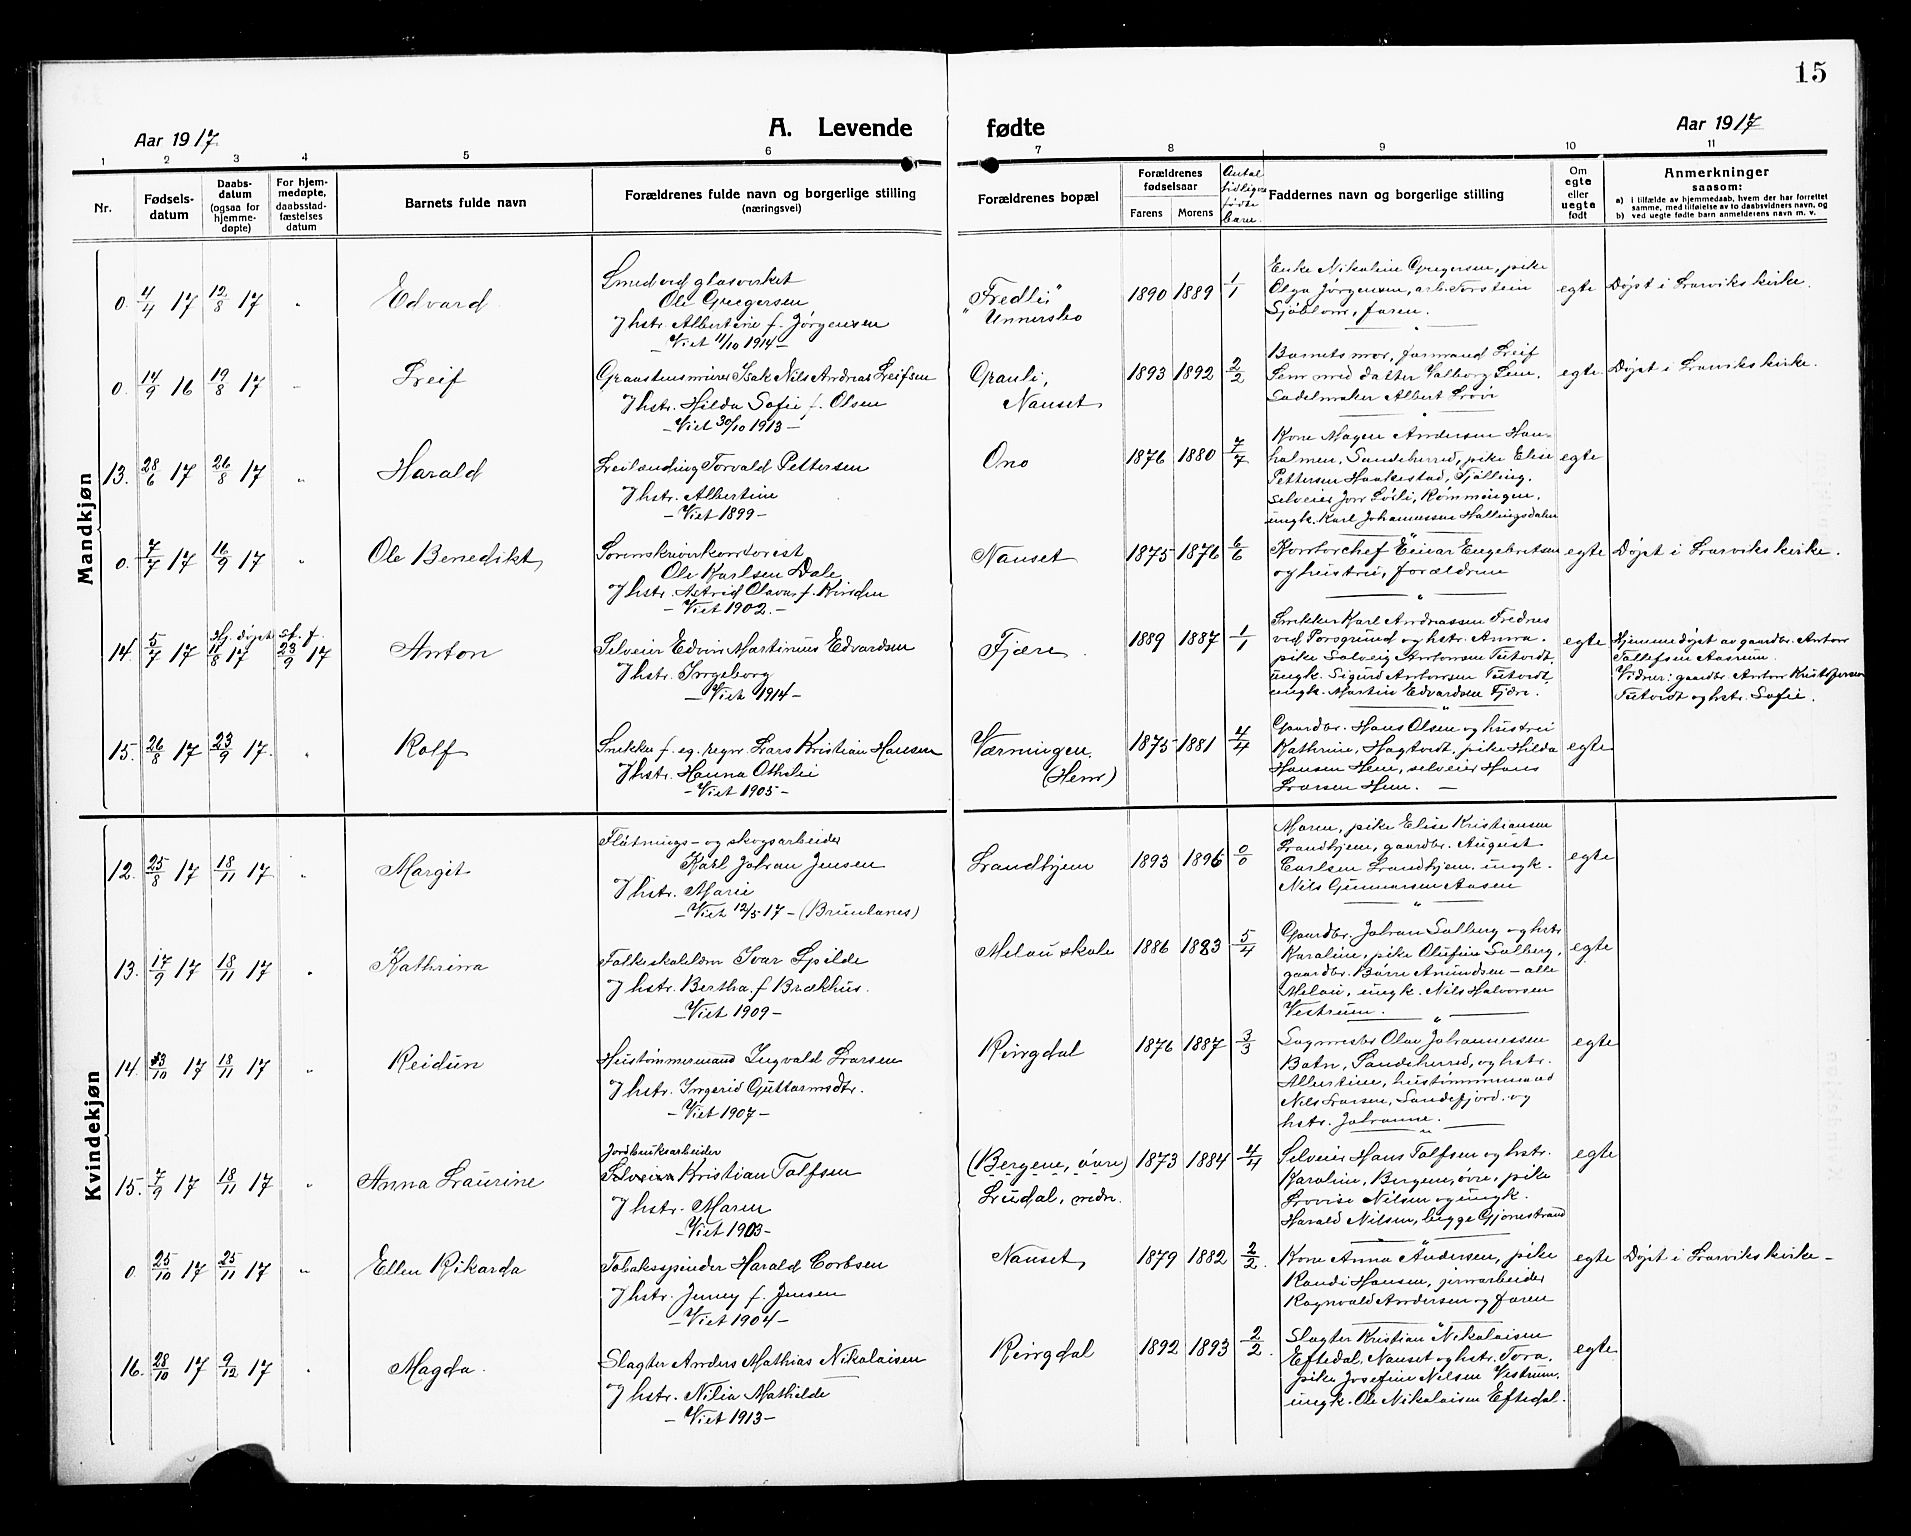 15
Aar 1917.
A. Levende fødte
Aar 1917
1 2 3 4 5 6 7 8 9 10 11
Nr.
Fødsels-
datum
Daabs-
datum
(ogsaa for
hjemme-
døpte)
For hjem-
medøpte,
daabsstad-
fæstelses
datum
Barnets fulde navn
Forældrenes fulde navn og borgerlige stilling
(næringsvei)
Forældrenes bopæl
Forældrenes
fødselsaar
Farens Morens
Antal
tidligere
fødte
barn.
Faddernes navn og borgerlige stilling
Om
egte
eller
uegte
født
Anmerkninger
saasom:
a) i tilfælde av hjemmedaab, hvem der har forrettet
samme, med tilføielse av to daabsvidners navn, og
b) ved uegte fødte barn anmelderens navn m. v.
Mandkjøn
0. 4/4 17 12/8 17 " Edvard
Smed ved glasverket
Ole Gregersen
& hstr. Albertine f. Jørgensen
- Viet 11/10 1914 -
"Fredli"
Unnersbo
1890 1889 1/1
Enke Nikoline Gregersen, pike
Olga Jørgensen, arb. Torstein
Sjöblom, faren.
egte Døpt i Larviks kirke.
0. 14/9 16 19/8 17 " Leif
Graastensmurer Isak Nils Andreas Leifsen
& hstr. Hilda Sofie f. Olsen
- Viet 30/10 1913 -
Granli,
Nanset
1893 1892 2/2
Barnets mor, formand Leif
Lem med datter Valborg Lem.
Sadelmaker Albert Lrövi
egte. Døpt i Larviks kirke.
13. 28/6 17 26/8 17 " Harald
Leilænding Torvald Pettersen
& hstr. Albertine
- Viet 1899 -
Ono
1876 1880 7/7
Kone Magen Andersen Hau-
holmen, Sandeherred, pike Elise
Pettersen Haakestad, Tjølling,
selveier Jon Sörli, Kømmingen,
ungk. Karl Johannessen Hallingsdalen
egte
0. 7/7 17 16/9 17 " Ole Benedikt
Sorenskriverkontorist
Ole Karlsen Dale
& hstr. Astrid Olava f. Kirsten
- Viet 1902. -
Nanset
1875 1876 6/6
Kontorchef Einar Engebretsen
og hustru, forældrene
egte Døpt i Larviks kirke.
14. 5/7 17 Hj. døpt 11/8 17 st. f. 23/9 17 Anton
Selveier Edvin Martinius Edvardsen
& hstr. Ingeborg
- Viet 1914 -
Fjære
1889 1887 1/1
Snekker Karl Andreassen Frednes
ved Porsgrund og hstr. Anna.
pike Solveig Antonsen Tutvedt,
ungk. Sigurd Antonsen Tutvedt,
ungk. Martin Edvardsen Fjære.
egte
Hjemmedøpt av gaardbr. Anton
Tollefsen Aasrum.
Vidner: gaardbr. Anton Kristofersen
Tutvedt og hstr. Sofie.
15. 26/8 17 23/9 17. " Rolf
Snekker f. eg. regn. Lars Kristian Hansen
& hstr. Hanna Othelie
- Viet 1905 -
Værmingen
(Hem)
1875 1881 4/4
Gaardbr. Hans Olsen og hustru
Kathrine, Hagtvedt, pike Hilda
Hansen Hem, selveier Hans
Larsen Hem. -
egte
Kvindekjøn
12. 25/8 17 18/11 17 " Margit
Fløtnings- og skogsarbeider
Karl Johan Jensen
& hstr. Marie
- Viet 12/5 17 - (Brunlanes)
Landbjem
1893 1896 0/0
Maren, pike Elise Kristiansen
Landbjem, gaardbr. August
Carlsen Landbjem, ungk.
Nils Gunnarsen Aasen
egte
13. 17/9 17 18/11 17 " Kathrina
Folkeskolelærer Ivar Spilde
& hstr. Bertha f. Brækhus.
- Viet 1909 -
Melau skole
1886 1883 5/4
Gaardbr. Johan Solberg og hstr
Karoline, pike Olufine Solberg,
gaardbr. Børre Amundsen - alle
Melau, ungk. Nils Halvorsen
Vestrum.
egte
14. 13/10 17 18/11 17 " Reidun
Hustømmermand Ingvald Larsen
& hstr. Ingerid Guttormsdtr.
- Viet 1907 -
Ringdal
1876 1887 3/3
Sagmester Olav Johannessen
Botn, Sandeherred, og hstr.
Albertine, hustømmermand
Nils Larsen, Sandefjord. og
hstr. Johanne.
egte
15. 7/9 17 18/11 17 " Anna Laurine
Jordbruksarbeider
Selveier Kristian Tolfsen
& hstr. Maren
- Viet 1903 -
(Bergene, övre)
Ludal, nedr.
1873 1884 4/4
Selveier Hans Tolfsen og hstr.
Karoline, Bergene, övre, pike
Lovise Nilsen og ungk.
Harald Nilsen, begge Gjonestrand
egte
0 25/10 17 25/11 17 " Ellen Rikarda
Tobaksspinder Harald Corbsen
& hstr. Jenny f. Jensen
- Viet 1904 -
Nanset
1879 1882 2/2
Kone Anna Andersen, pike
Randi Hansen, jernarbeider
Ragnvald Andersen og faren
egte Døpt i Larviks kirke -
16. 28/10 17 9/12 17 " Magda
Slagter Anders Mathias Nikolaisen
& hstr. Nilia Mathilde
- Viet 1913 -
Ringdal
1892 1893 2/2
Slagter Kristian Nikolaisen
Eftedal, Nanset og hstr. Tora,
pike Josefine Nilsen Vestrum,
ungk. Ole Nikolaisen Eftedal.
egte